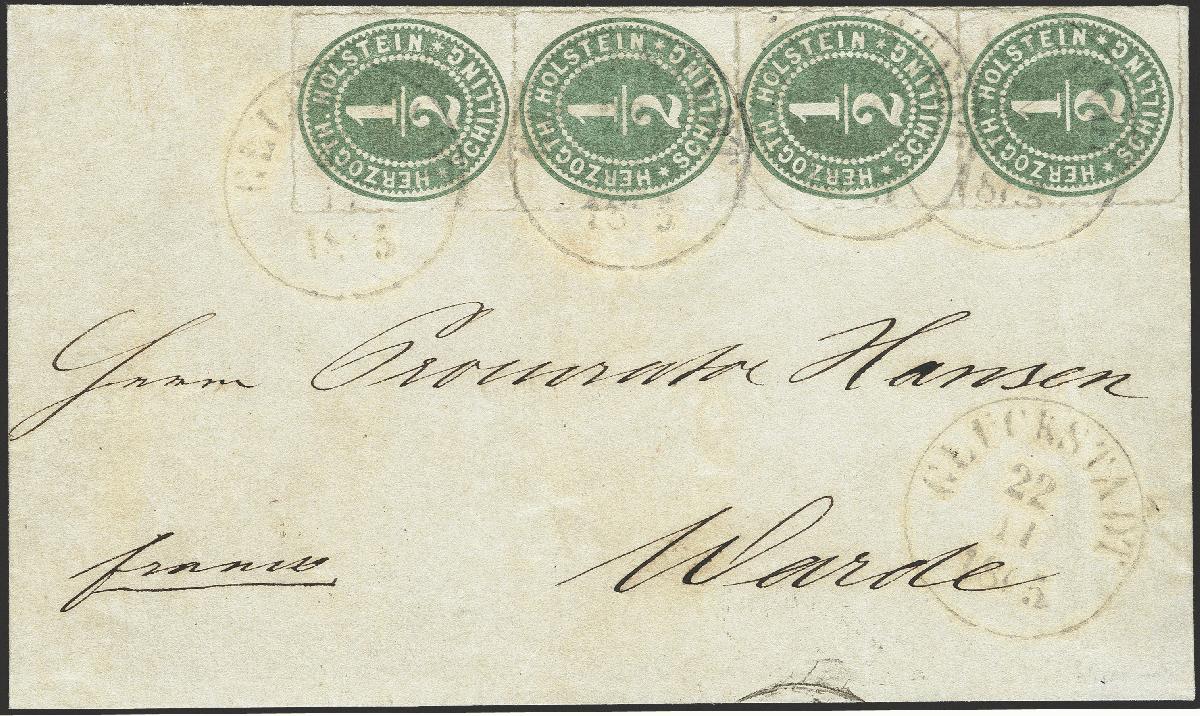 HERZOGTH. HOLSTEIN * SCHILLING *
1/2
HERZOGTH. HOLSTEIN * SCHILLING *
1/2
HERZOGTH. HOLSTEIN * SCHILLING *
1/2
HERZOGTH. HOLSTEIN * SCHILLING *
1/2
Herrn Procurator Hansen
GLÜCKSTADT
22
11
franco
Warde